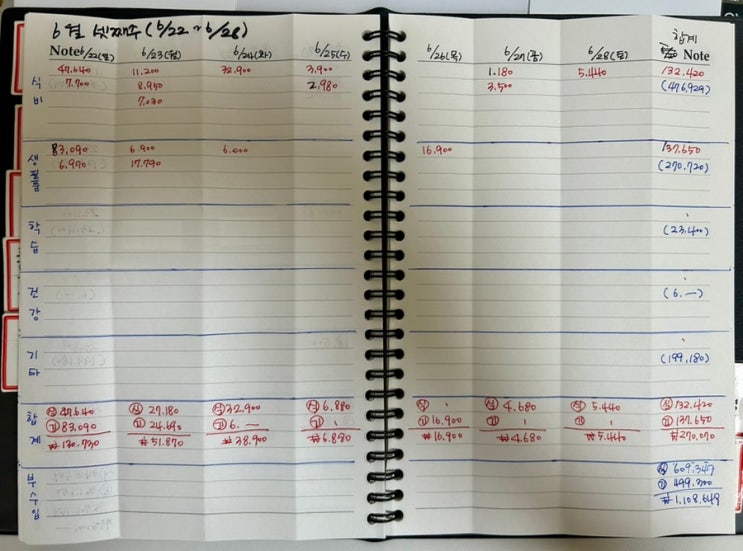 6월 넷째주 (6/22 ~ 6/28)
합계
Note 6/22(일) 6/23(월) 6/24(화) 6/25(수) 6/26(목) 6/27(금) 6/28(토) Note
식비 47.640 11.200 32.900 3.900 1.180 5.440 132.420
7.700 8.950 2.980 3.500 (476,929)
7.030
생필품 83,090 6.900 6.000 16.900 137.650
6.970 17.790 (270.720)
학습 (23.400)
건강 (6.—)
기타 (199,180)
합계 식 47.640 식 27.180 식 32.900 식 6.880 식 식 4.680 식 5.440 식 132.420
기 83.090 기 24.690 기 6.— 기 기 16.900 기 기 기 137.650
₩ 130.730 ₩ 51.870 ₩ 38.900 ₩ 6.880 ₩ 16.900 ₩ 4.680 ₩ 5.440 ₩ 270.070
부수입 식 609.349
기 499.300
₩ 1.108.649